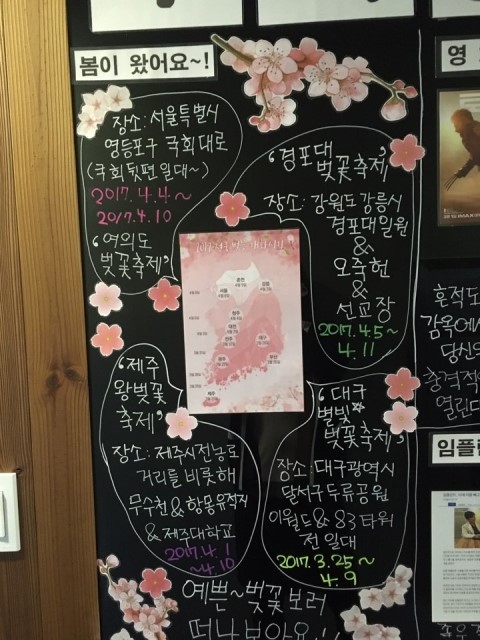 봄이 왔어요~!
장소: 서울특별시
영등포구 국회대로
(국회 뒷편 일대~)
2017.4.4~
2017.4.10
'여의도
벚꽃축제'
'경포대
벚꽃축제'
장소: 강원도 강릉시
경포대 일원
&
오죽헌
&
선교장
2017.4.5~
4.11
'제주
왕벚꽃
축제'
장소: 제주시 전농로
거리를 비롯해
무수천 & 항몽유적지
& 제주대학교
2017.4.1
~4.10
'대구
별빛
벚꽃축제'
장소: 대구광역시
달서구 두류공원
이월드 & 83타워
전 일대
2017.3.25~
4.9
예쁜~벚꽃 보러
떠나보아요!
영
흔적도
감옥에서
당신의
충격적
열린다
임플란